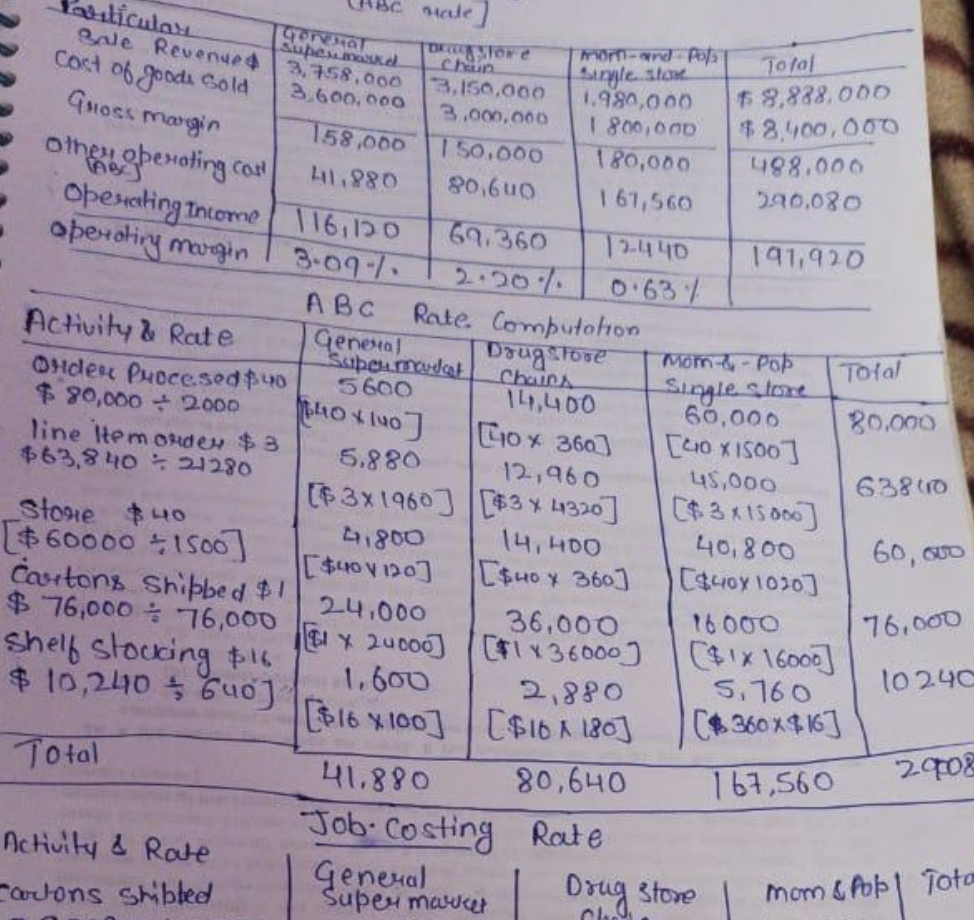 [ABC rate]
Particular | General Supermarket | Drugstore Chain | Mom-and-Pop Single store | Total
Sale Revenue $ | 3,758,000 | 3,150,000 | 1,980,000 | $ 8,888,000
Cost of goods Sold | 3,600,000 | 3,000,000 | 1 800,000 | $ 8,400,000
Gross margin | 158,000 | 150,000 | 180,000 | 488,000
Other operating cost [ABC] | 41,880 | 80,640 | 167,560 | 290,080
Operating Income | 116,120 | 69,360 | 12440 | 197,920
Operating margin | 3.09% | 2.20% | 0.63%
ABC Rate Computation
Activity & Rate | General Supermarket | Drugstore Chains | Mom-&-Pop Single store | Total
Order Procesed $40 | 5600 | 14,400 | 60,000 | 80,000
$ 80,000 ÷ 2000 | [$40 x 140] | [40 x 360] | [40 x 1500]
line item order $ 3 | 5,880 | 12,960 | 45,000 | 63840
$63,840 ÷ 21280 | [$3 x 1960] | [$3 x 4320] | [$3 x 15000]
Store $ 40 | 4,800 | 14,400 | 40,800 | 60,000
[$60000 ÷ 1500] | [$40 x 120] | [$40 x 360] | [$40x1020]
Cartons Shipped $1 | 24,000 | 36,000 | 16000 | 76,000
$ 76,000 ÷ 76,000 | [$1 x 24000] | [$1 x 36000] | [$1x 16000]
Shelf Stocking $16 | 1,600 | 2,880 | 5,760 | 10240
$ 10,240 ÷ 640] | [$16 x 100] | [$16 x 180] | [$360x$16]
Total | 41,880 | 80,640 | 167,560 | 29008
Job-Costing Rate
Activity & Rate | General Supermarket | Drug store | Mom & Pop | Tota
Cartons shipped